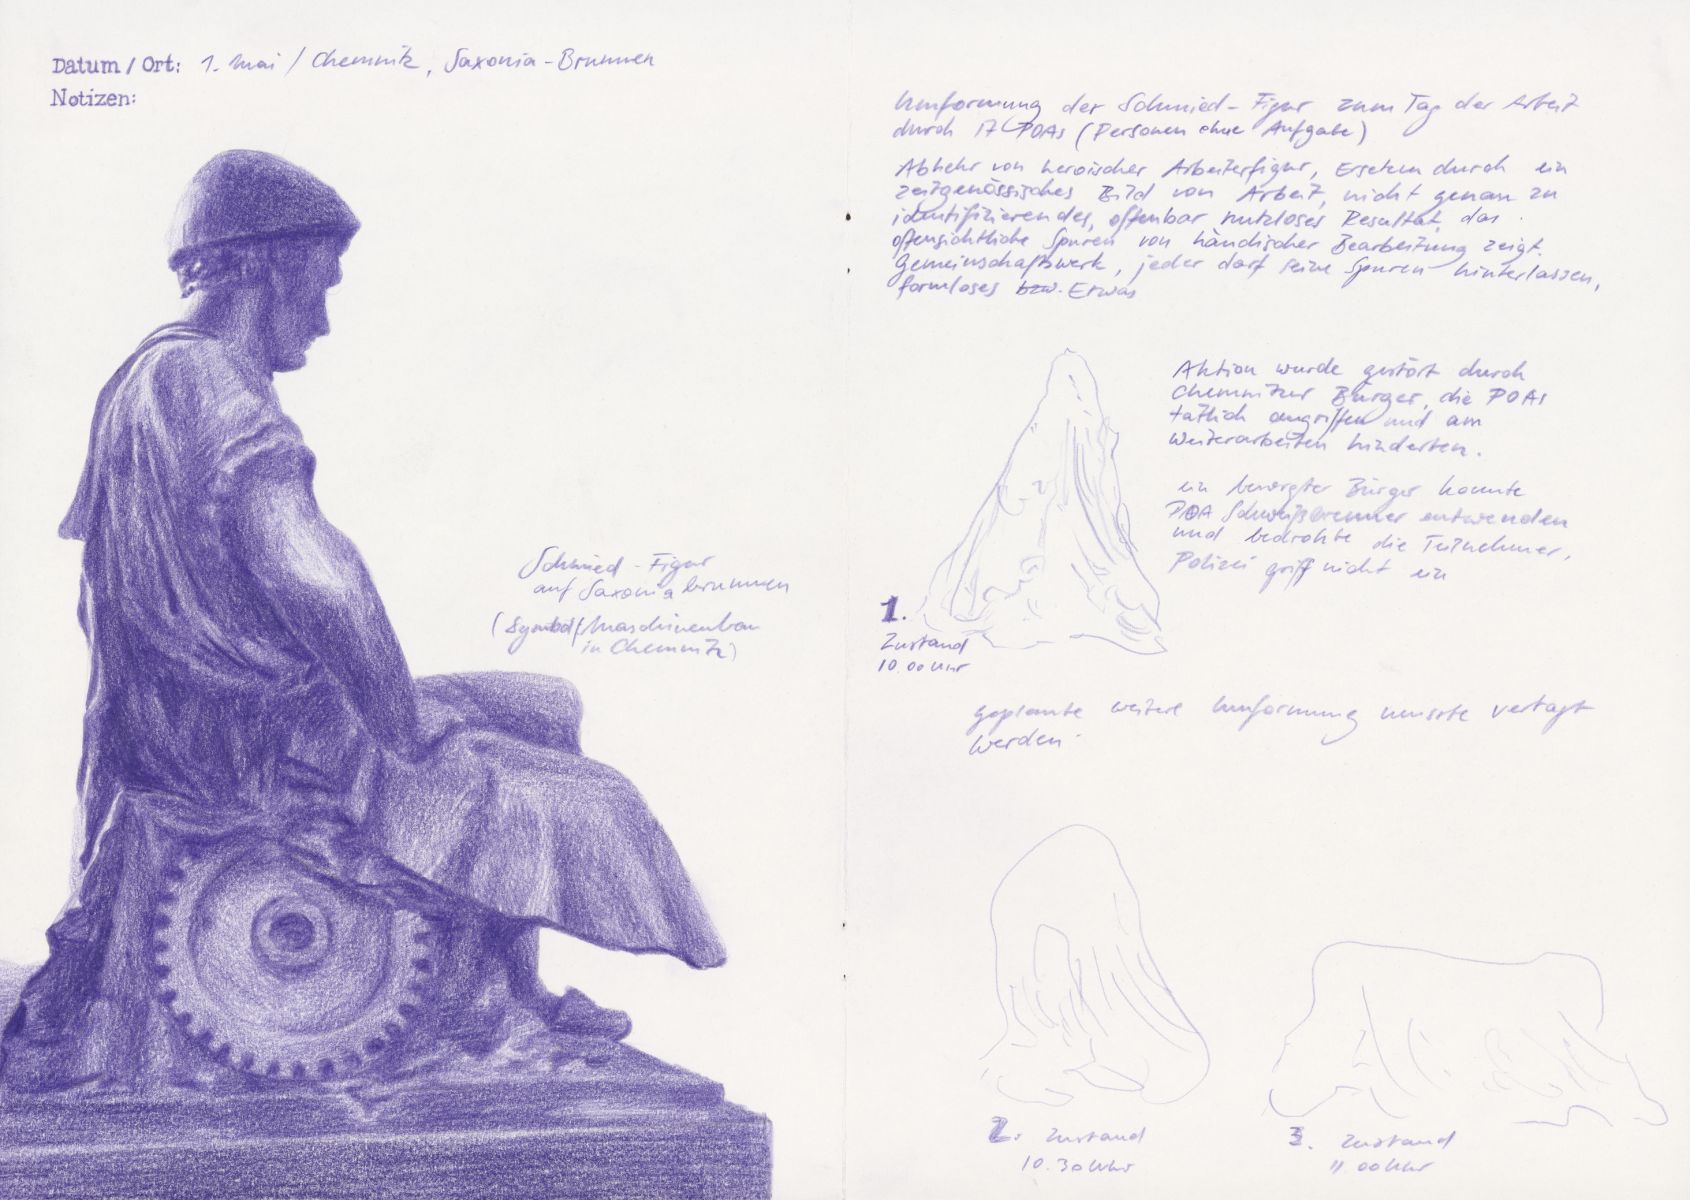 Datum / Ort: 1. Mai / Chemnitz, Saxonia-Brunnen
Notizen:
Schmied-Figur
auf Saxoniabrunnen
(Symbol f. Maschinenbau
in Chemnitz)
Umformung der Schmied-Figur zum Tag der Arbeit
durch 17 POAs (Personen ohne Aufgabe)
Abkehr von heroischer Arbeiterfigur, Ersetzen durch ein
zeitgenössisches Bild von Arbeit, nicht genau zu
identifizierendes, offenbar nutzloses Resultat, das
offensichtliche Spuren von händischer Bearbeitung zeigt.
Gemeinschaftswerk, jeder darf seine Spuren hinterlassen,
formloses bzw. Etwas
Aktion wurde gestört durch
Chemnitzer Bürger, die POAs
tätlich angriffen und am
Weiterarbeiten hinderten.
ein besorgter Bürger konnte
POA Schweißbrenner entwenden
und bedrohte die Teilnehmer,
Polizei griff nicht ein
1.
Zustand
10.00 Uhr
geplante weitere Umformung musste vertagt
werden.
2. Zustand
10.30 Uhr
3. Zustand
11.00 Uhr